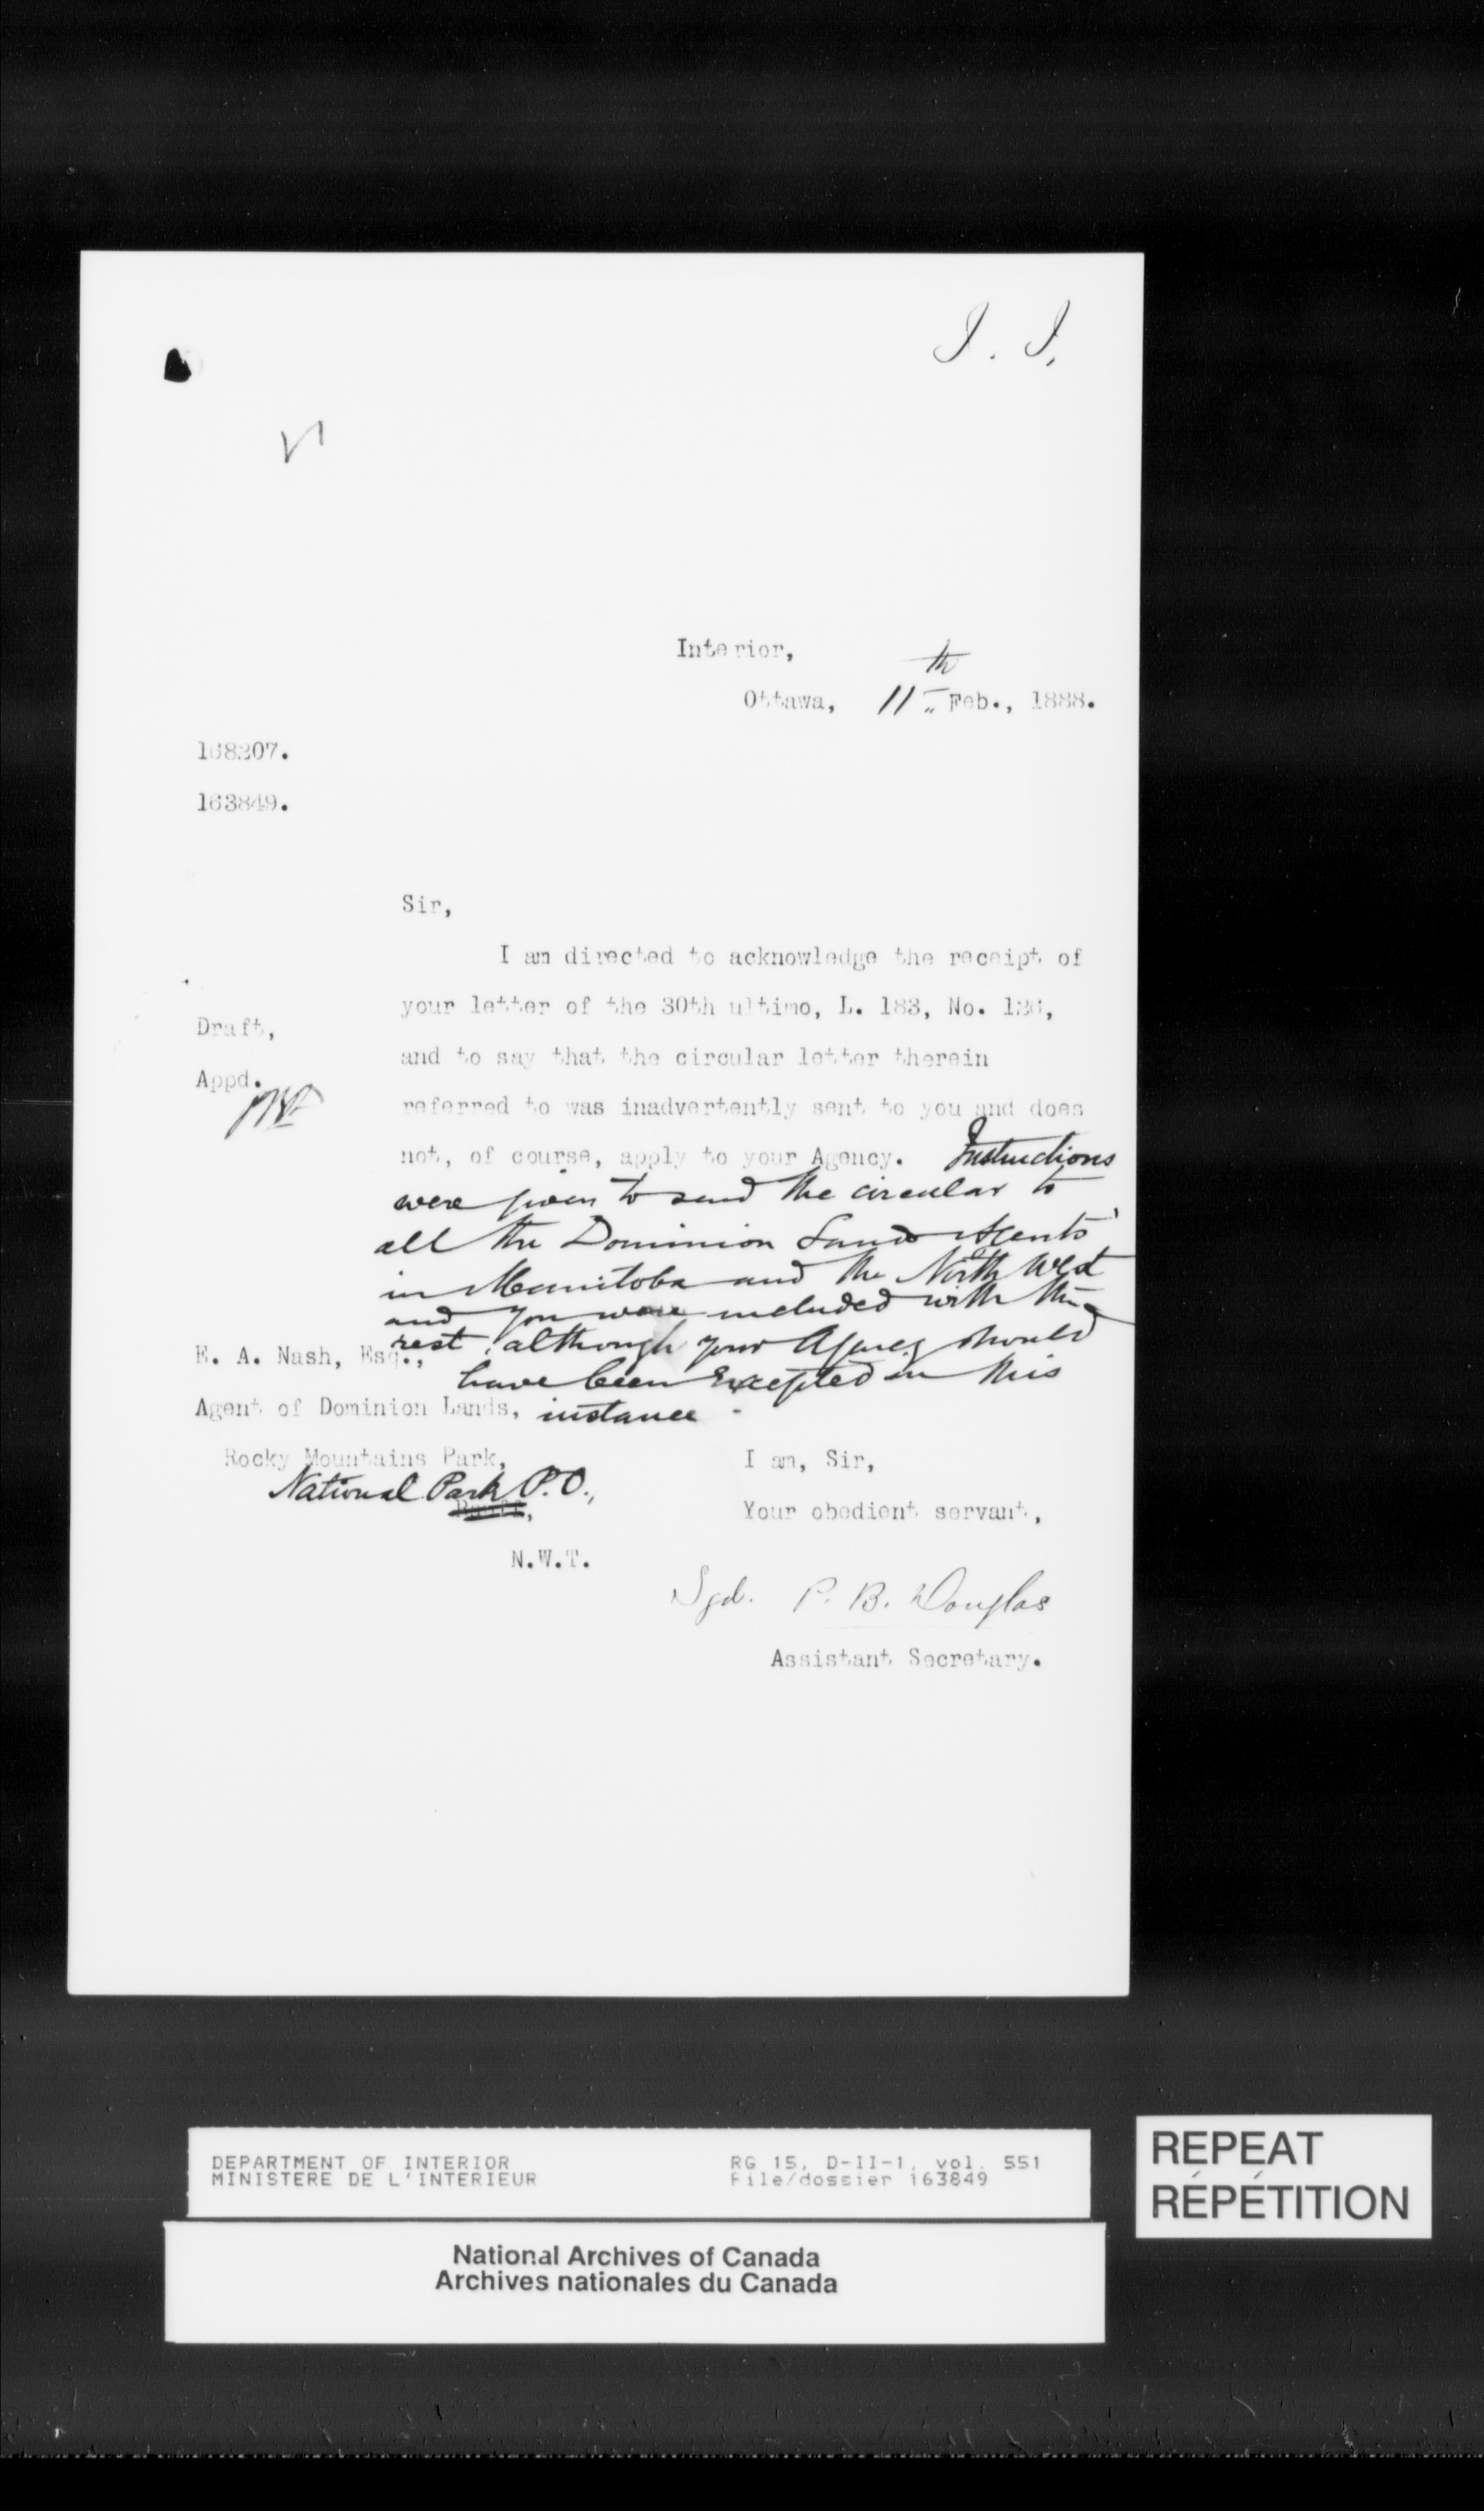 J. J.
Interior,
Ottawa, 11th Feb., 1888.
168207.
163849.
Sir,
I am directed to acknowledge the receipt of
your letter of the 30th ultimo, L. 183, No. 126,
and to say that the circular letter therein
referred to was inadvertently sent to you and does
not, of course, apply to your Agency. Instructions
were given to send the circular to
all the Dominion Lands Agents
in Manitoba and the North West
and you were included with the
rest, although your Agency should
have been excepted in this
instance.
Draft,
Appd.
E. A. Nash, Esq.,
Agent of Dominion Lands,
Rocky Mountains Park,
National Park P.O.,
Banff,
N.W.T.
I am, Sir,
Your obedient servant,
Sgd. P. B. Douglas
Assistant Secretary.
DEPARTMENT OF INTERIOR
MINISTERE DE L'INTERIEUR
RG 15, D-II-1, vol. 551
File/dossier 163849
National Archives of Canada
Archives nationales du Canada
REPEAT
RÉPÉTITION